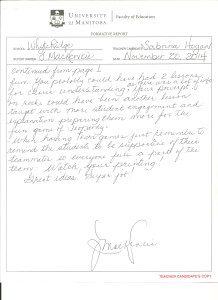 UNIVERSITY
OF MANITOBA
Faculty of Education
FORMATIVE REPORT
SCHOOL: White Ridge
TEACHER CANDIDATE: Sabrina Hogan
J. Mackenzie
DATE: November 20, 2014
Continued from page 1
You possibly could have had 2 lessons
for clearer understanding. Your
on rocks could have been another lesson
taught with more student engagement and
explanation preparing them more for the
fun game of Jeopardy.
When having team games just remember to
remind the student to be supportive of their
teammates so everyone feels a part of the
team. Watch your
Great ideas. Super job!
TEACHER CANDIDATE'S COPY